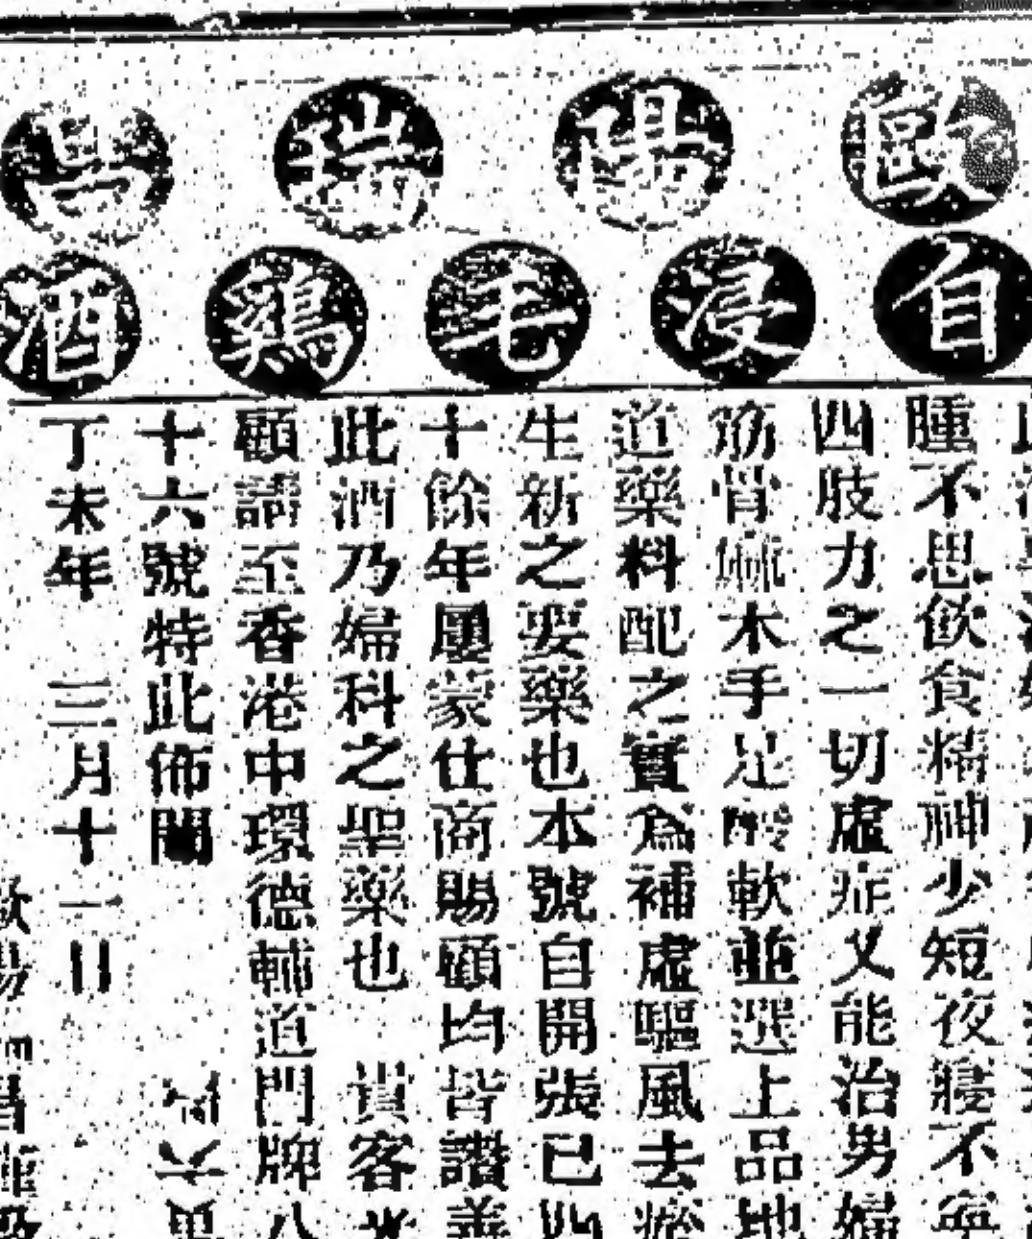 歐陽瑞昌
自浸毛鷄酒
腫不思飲食精神少短夜寢不寧
四肢力乏一切虛症又能治男婦
筋骨痲木手足酸軟並選上品地
道藥料配之實為補虛驅風去瘀
生新之要藥也本號自開張已四
十餘年屢蒙仕商賜顧均皆讚善
此酒乃婦科之聖藥也 貴客光
顧請至香港中環德輔道門牌八
十六號特此佈聞
丁未年 三月十一日